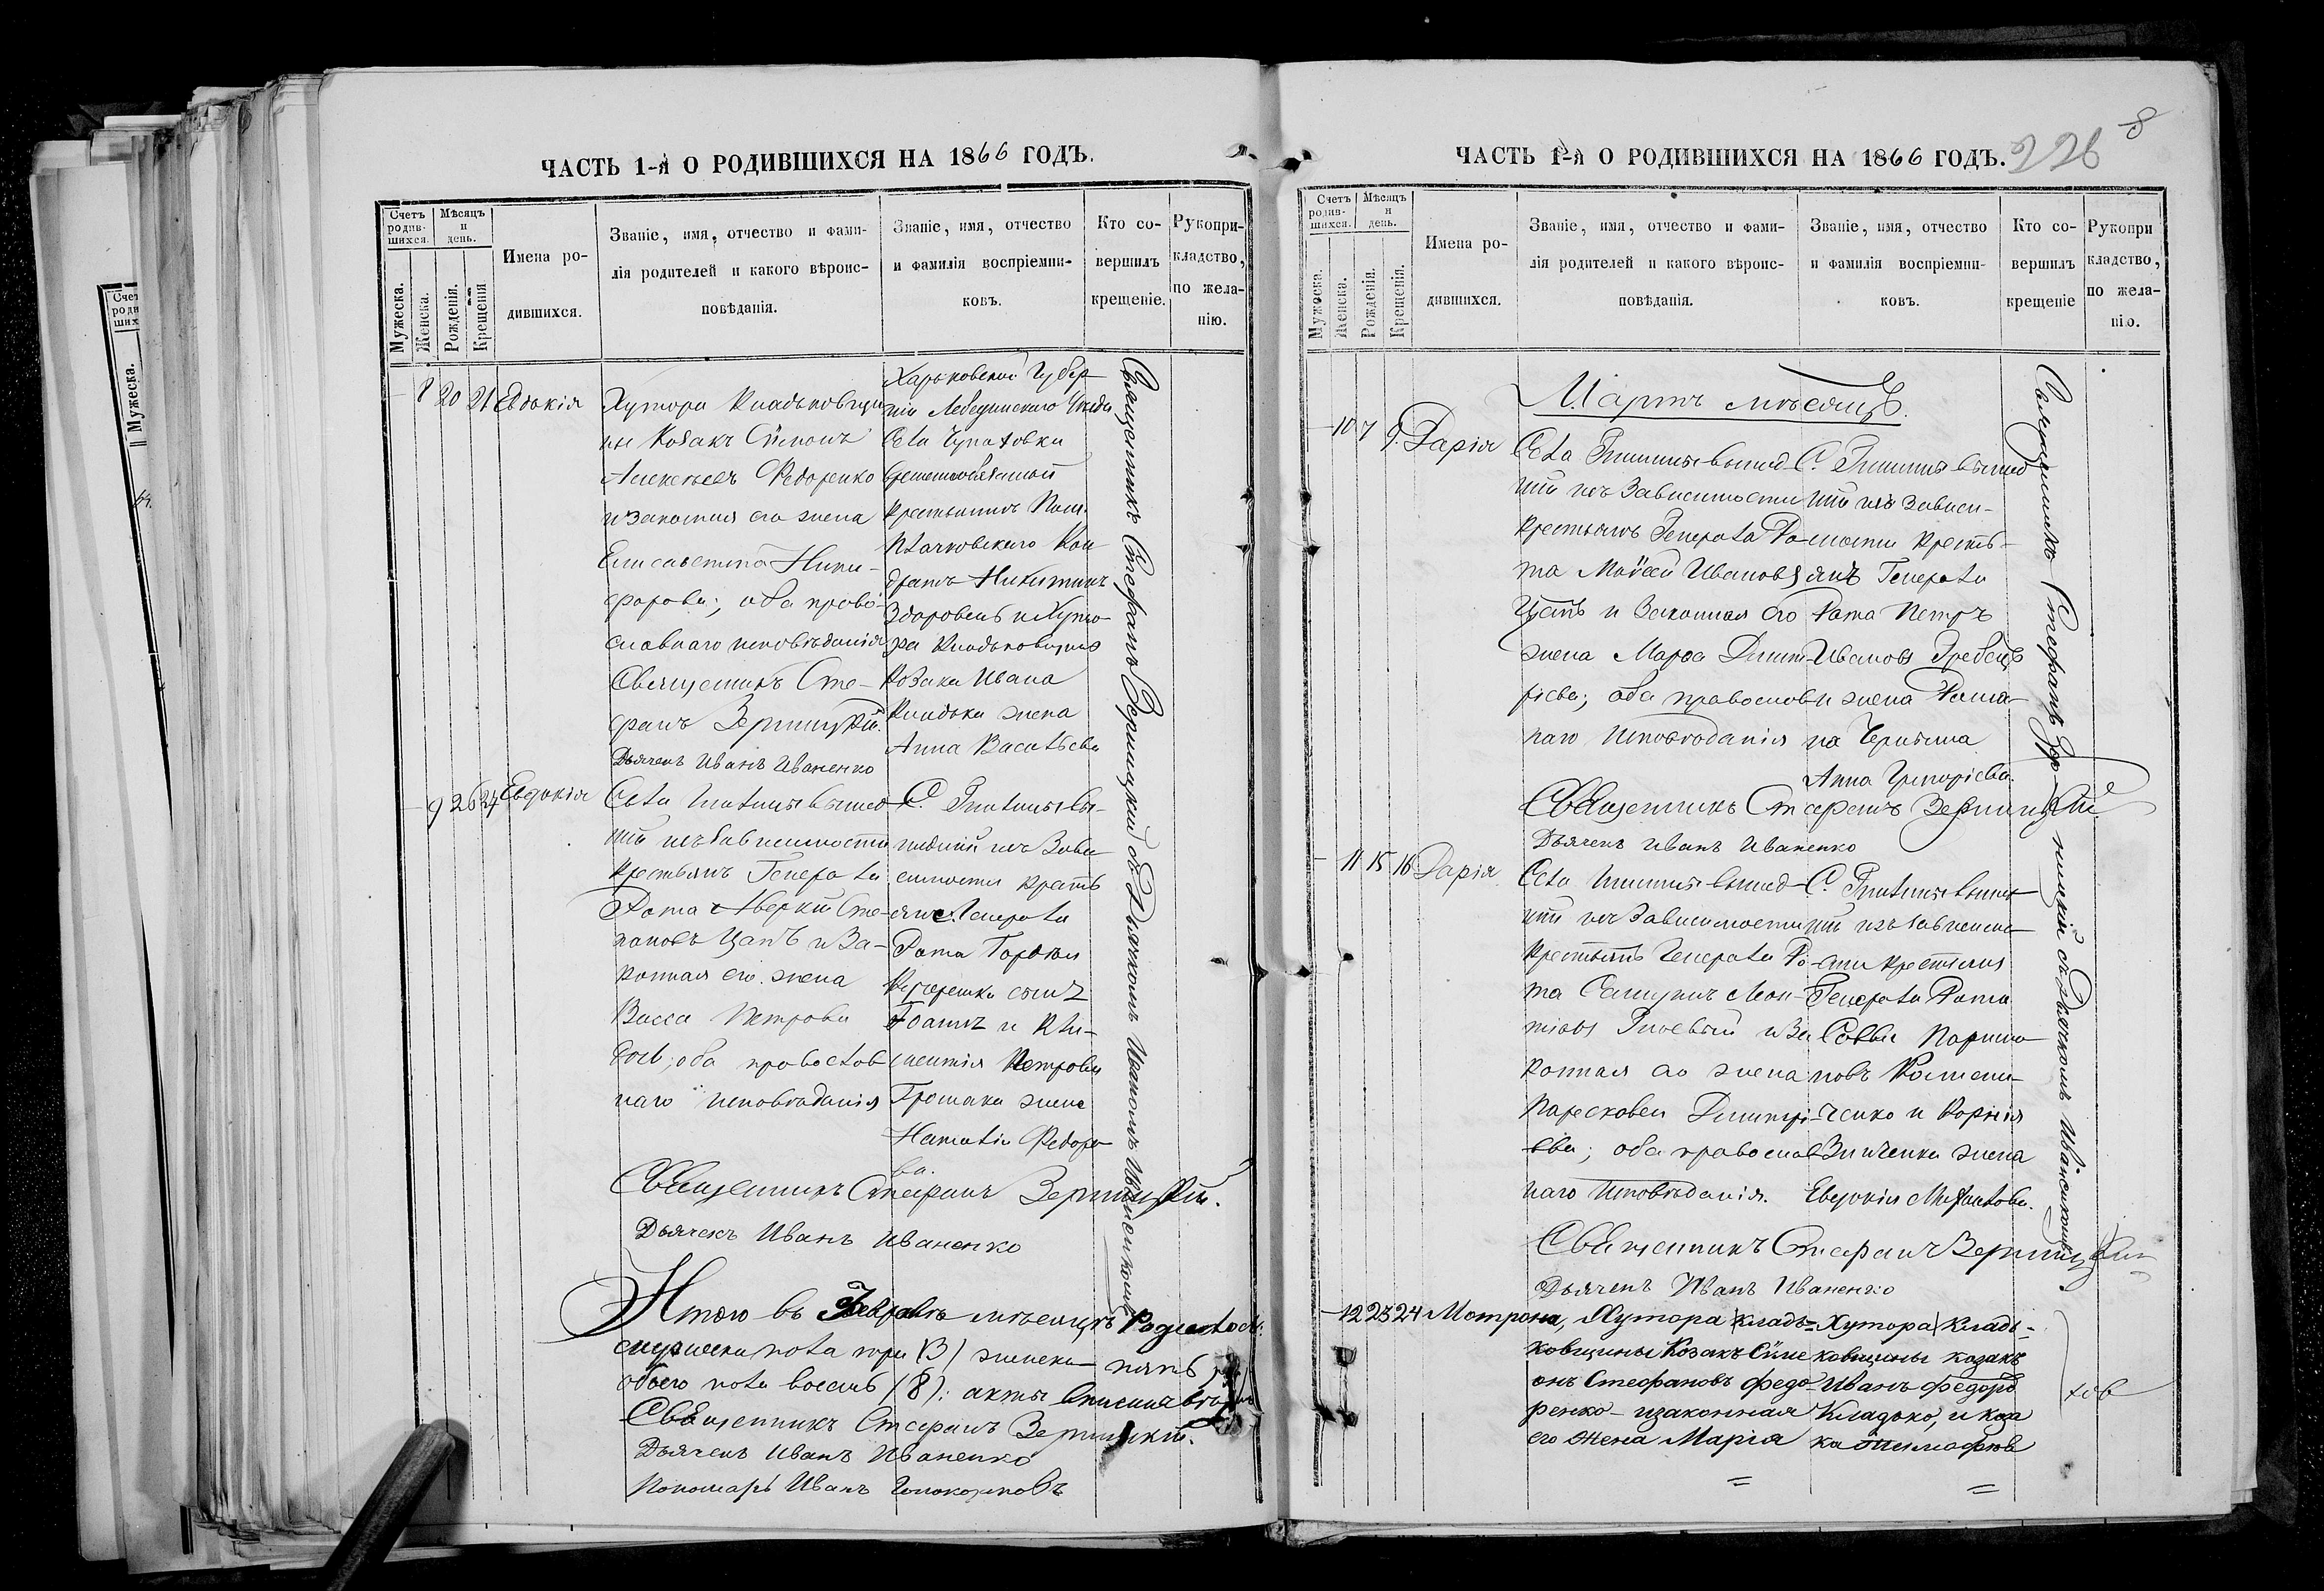 ЧАСТЬ 1-я О РОДИВШИХСЯ НА 1866 ГОДЪ.
Счетъ родив-шихся.
Мѣсяцъ и день.
Мужеска.
Женска.
Рожденія.
Крещенія
Имена ро-дившихся.
Званіе, имя, отчество и фами-
лія родителей и какого вѣроис-
повѣданія.
Званіе, имя, отчество
и фамилія воспріемни-
ковъ.
Кто со-
вершилъ
крещеніе.
Рукопри-
кладство,
по жела-
нію.
8 20 21 Евдокія
Хутора Кладьковщи
ны Козакъ Симонъ
Алексѣевъ Федоренко
и законная его жена
Елисавета Ники-
форова; оба право-
славнаго исповѣданія
Священникъ Сте-
фанъ Зерницкій.
Дьячекъ Иванъ Иваненко
Харьковской Губер
ніи Лебединскаго Уѣзда
Села Чупаховки
временнообязанный
крестьянинъ Пом.
Кон
дратъ Никитинъ
и Хуто-
ра Кладьковщины
Козака Ивана
Кладька жена
Анна Васильева
Священникъ Стефанъ Зерницкій съ Дьячкомъ Иваномъ Иваненкомъ
9 26 27 Евдокія
Села вышед-
шій изъ зависимости
крестьянъ Генерала
Рота Аверкій Сте-
пановъ Цапъ и за-
конная его жена
Васса Петрова
оба православ
наго исповѣданія
С. вы-
шедшій изъ зави
симости кресть
янъ Генерала
Рота Гордѣя
сынъ
Іоаннъ и Кли-
ментія Петрова
жена
Наталія Федоро-
ва.
Священникъ Стефанъ Зерницкій.
Дьячекъ Иванъ Иваненко
Итого въ Февралѣ мѣсяцѣ Родилось:
мужеска пола три (3) женска пять
обоего пола восемь (8): акты
Священникъ Стефанъ Зерницкій.
Дьячекъ Иванъ Иваненко
Пономарь Иванъ
ЧАСТЬ 1-я О РОДИВШИХСЯ НА 1866 ГОДЪ.
226
8
Счетъ родив-шихся.
Мѣсяцъ и день.
Мужеска.
Женска.
Рожденія.
Крещенія.
Имена ро-
дившихся.
Званіе, имя, отчество и фами-
лія родителей и какого вѣроис-
повѣданія.
Званіе, имя, отчество
и фамилія воспріемни-
ковъ.
Кто со-
вершилъ
крещеніе
Рукопри
кладство,
по жела-
нію.
Мартъ мѣсяцъ.
10 7 9. Дарія
Села вышед-
шій изъ зависимости
крестьянъ Генерала Ро-
та Моѵсей Ивановъ
Цапъ и законная его
жена Марѳа Дмит-
ріева; оба православ
наго исповѣданія
С. вышед
шій изъ зависи-
мости кресть-
янъ Генерала
Рота Петръ
Ивановъ Гребецъ
и жена Рома-
на
Анна Григоріева.
Священникъ Стефанъ Зерницкій
Дьячекъ Иванъ Иваненко
Священникъ Стефанъ Зер-ницкій съ Дьячкомъ Иваненкомъ
11 15 16 Дарія
Села вышед-
шій изъ зависимости
крестьянъ Генерала Ро-
та
и за
конная его жена
Парасковея Дмитрі-
ева; оба православ
наго исповѣданія.
С. вышед
шій изъ зависимо
сти крестьянъ
Генерала Рота
Савва
новъ
ченко и Корнія
Зинченка жена
Евдокія Михайлова.
Священникъ Стефанъ Зерницкій
Дьячекъ Иванъ Иваненко
12 23 24 Мотрона,
Хутора Кладь=
ковщины Козакъ Симе
онъ Стефановъ Федо-
ренко - и законная
его жена Марія
=
Хутора Кладь-
ковщины казакъ
Иванъ Федоровъ
Кладько, и каза
ка
=